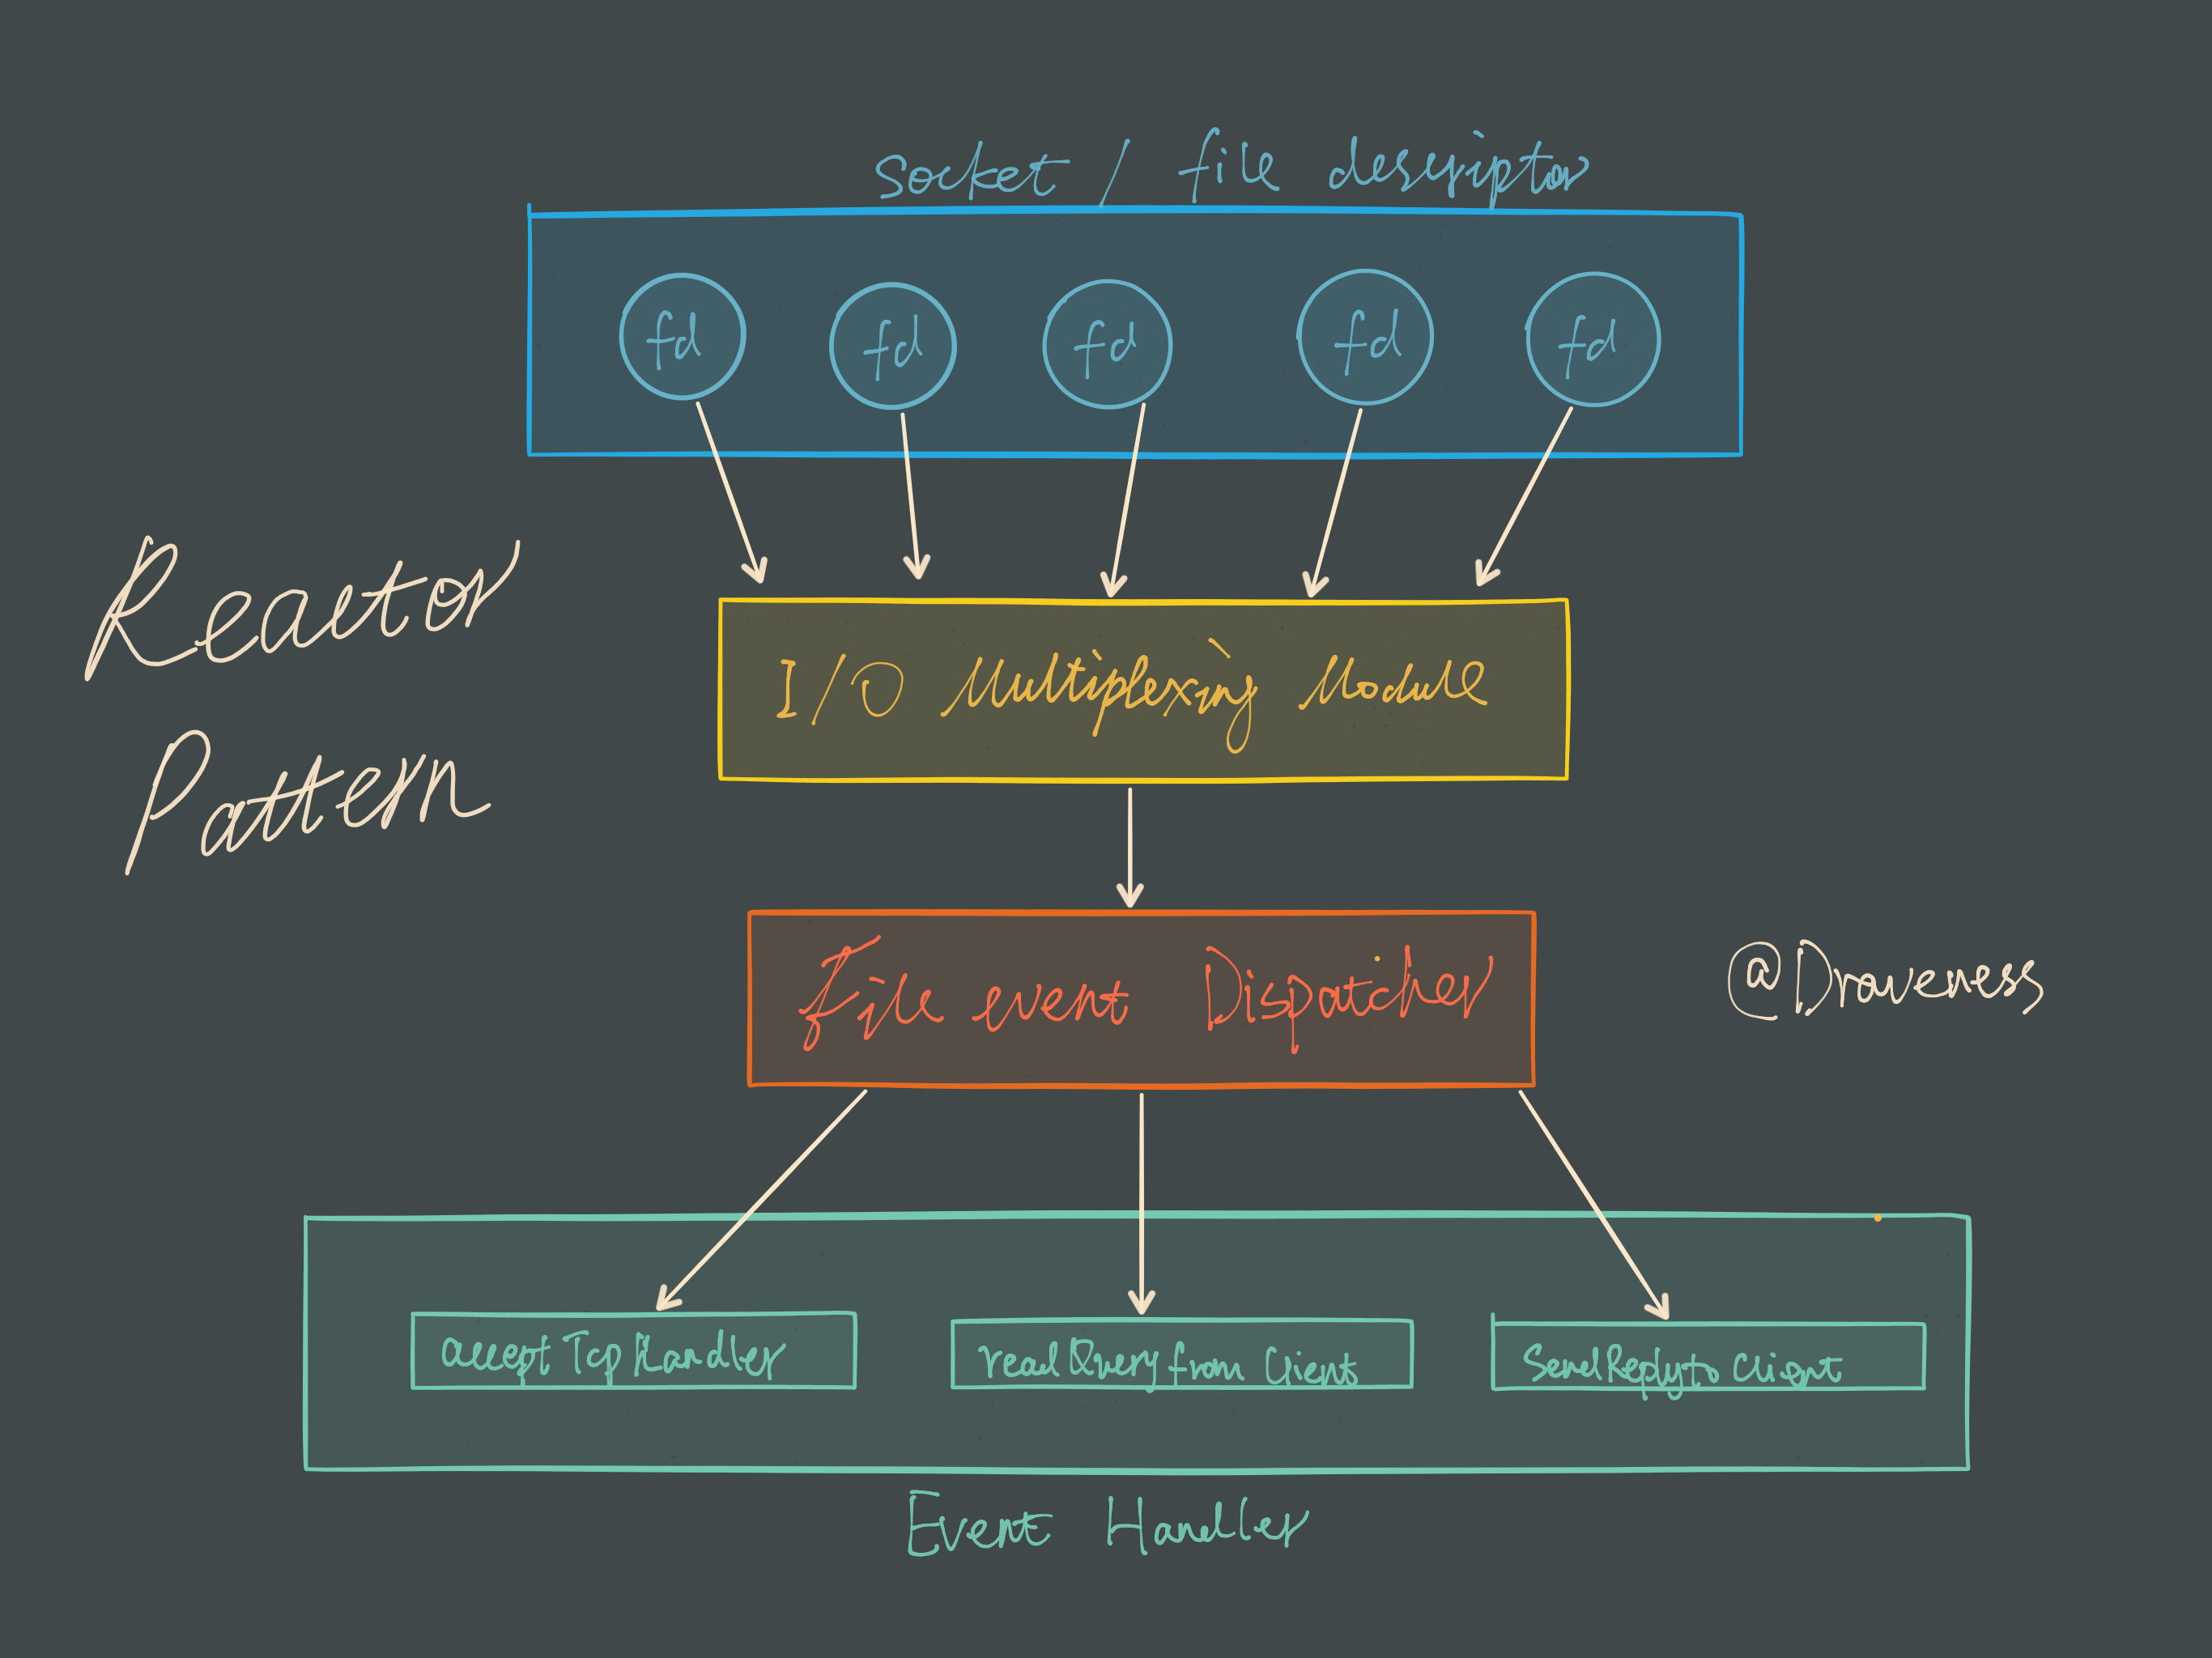 socket / file descriptor
fd fd fd fd fd
Reactor
Pattern
I/O Multiplexing Module
File event Dispatcher
@Draveness
acceptTcpHandler
readQueryFromClient
sendReplyToClient
Event Handler